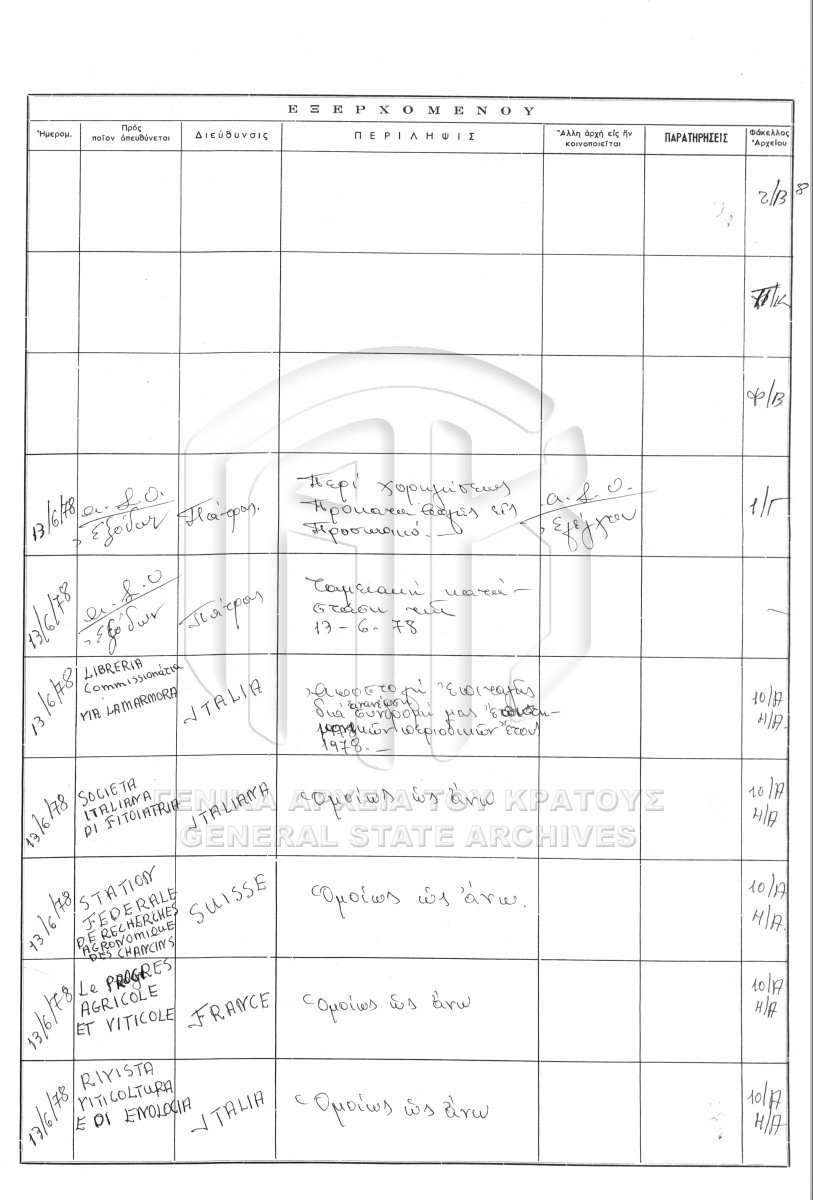 ΕΞΕΡΧΟΜΕΝΟΥ
Ἡμερομ.
Πρὸς
ποῖον ἀπευθύνεται
Διεύθυνσις
ΠΕΡΙΛΗΨΙΣ
Ἄλλη ἀρχή εἰς ἥν
κοινοποιεῖται
ΠΑΡΑΤΗΡΗΣΕΙΣ
Φάκελλος
Ἀρχείου
2/Β
8
Π/Κ
Φ/Β
13/6/78
Α.Σ.Ο.
Ἐξόδων
Πάτρας.
Περί χορηγήσεως
Προκαταβολῆς εἰς
Προσωπικό.—
Α.Σ.Ο.
Ἐλέγχου
1/Γ
13/6/78
Α.Σ.Ο
Ἐξόδων
Πάτρας
Ταμειακή κατά-
σταση τῆς
13-6-78
13/6/78
LIBRERIA
Commissionária
VIA LAMARMORA
ITALIA
Ἀποστολή Ἐπιταγῆς
διά ἀνανέωση συνδρομή μας
περιοδικῶν ἔτους
1978.—
10/Α
Η/Α.
13/6/78
SOCIETA
ITALIANA
DI FITOIATRIA
ITALIANA
Ὁμοίως ὡς ἄνω
10/Α
Η/Α
ΓΕΝΙΚΑ ΑΡΧΕΙΑ ΤΟΥ ΚΡΑΤΟΥΣ
GENERAL STATE ARCHIVES
13/6/78
STATION
FEDERALE
DE RECHERCHES
AGRONOMIQUE
DES CHANCINS
SUISSE
Ὁμοίως ὡς ἄνω.
10/Α
Η/Α.
13/6/78
Le PROGRES
AGRICOLE
ET VITICOLE
FRANCE
Ὁμοίως ὡς ἄνω
10/Α
Η/Α
13/6/78
RIVISTA
VITICOLTURA
E DI ENOLOGIA
ITALIA
Ὁμοίως ὡς ἄνω
10/Α
Η/Α